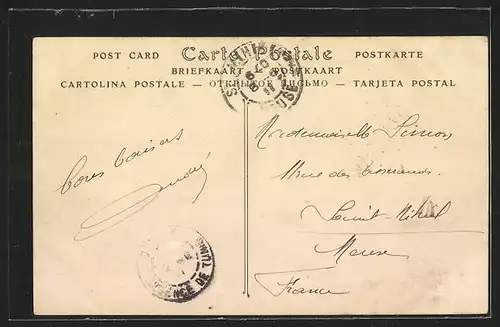 POST CARD Carte Postale POSTKARTE
BRIEFKAART - POSTKAART
CARTOLINA POSTALE - ОТКРЫТОЕ ПИСЬМО - TARJETA POSTAL
Bons baisers
André
Mademoiselle Simon
rue des
Saint Mihiel
Meuse
France
ST MIHIEL
MEUSE
REGENCE DE TUNIS